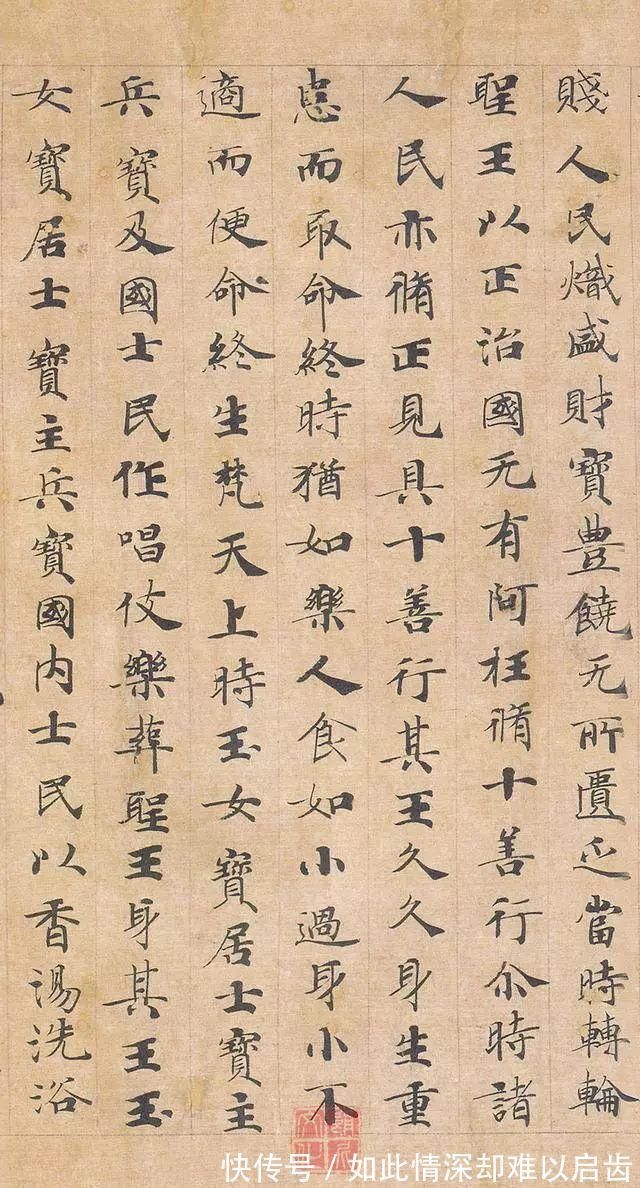 賤人民熾盛財寶豊饒无所匱乏當時轉輪
聖王以正治國无有阿枉脩十善行尒時諸
人民亦脩正見具十善行其王久久身生重
患而取命終時猶如樂人食如小過身小不
適而便命終生梵天上時玉女寶居士寶主
兵寶及國士民作唱伎樂葬聖王身其王玉
女寶居士寶主兵寶國内士民以香湯洗浴
快传号 / 如此情深却难以启齿